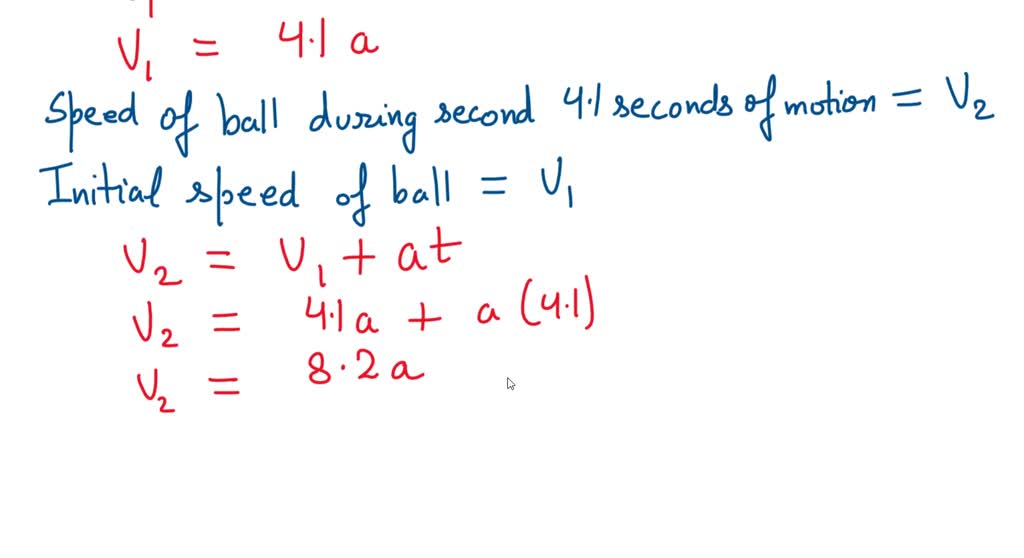 V₁ = 4.1 a
Speed of ball during second 4.1 seconds of motion = V₂
Initial speed of ball = V₁
V₂ = V₁ + at
V₂ = 4.1a + a (4.1)
V₂ = 8.2a